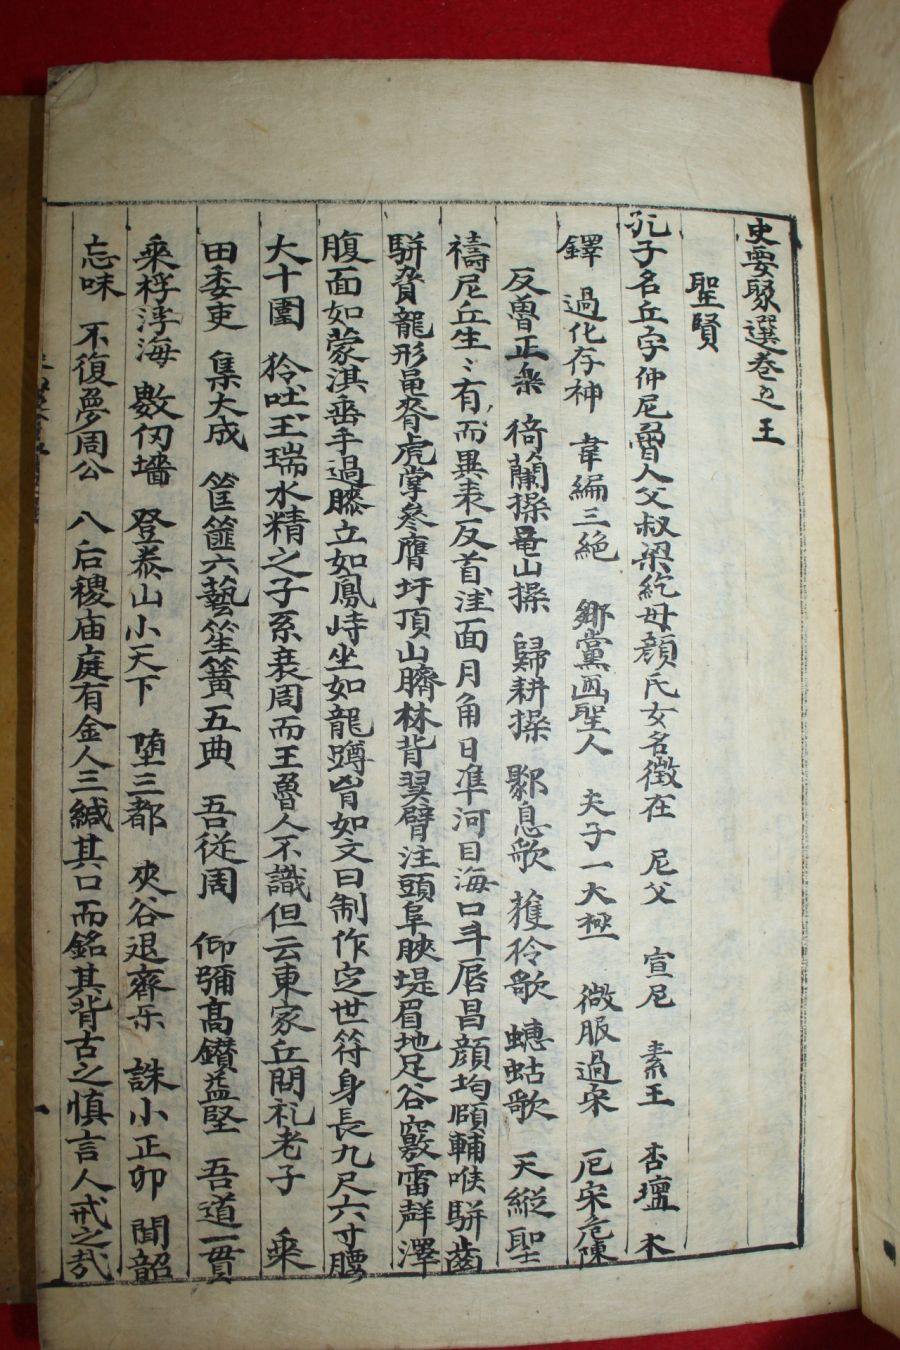 史要聚選卷之五
聖賢
孔子名丘字仲尼魯人父叔梁紇母顔氏女名徵在 尼父 宣尼 素王 杏壇 木
鐸 過化存神 韋編三絶 鄕黨畵聖人 夫子一大極 微服過宋 厄宋危陳
反魯正樂 猗蘭操龜山操 歸耕操 郰息歌 獲狑歌 蟪蛄歌 天縱聖
禱尼丘生〻有而異表反首洼面月角日準河目海口斗唇昌顔均頤輔喉騈齒
騈脅龍形龜脊虎掌參膺圩頂山臍林背翼臂注頭阜腴堤眉地足谷竅雷聲澤
腹面如蒙淇垂手過膝立如鳳峙坐如龍蹲胷如文曰制作定世符身長九尺六寸腰
大十圍 狑吐玉瑞水精之子系衰周而王魯人不識但云東家丘問礼老子 乘
田委吏 集大成 筐篚六藝笙簧五典 吾從周 仰彌高鑽益堅 吾道一貫
乘桴浮海 數仞墻 登泰山小天下 墮三都 夾谷退齊乐 誅小正卯 聞韶
忘味 不復夢周公 入后稷庙庭有金人三緘其口而銘其背古之慎言人戒之哉